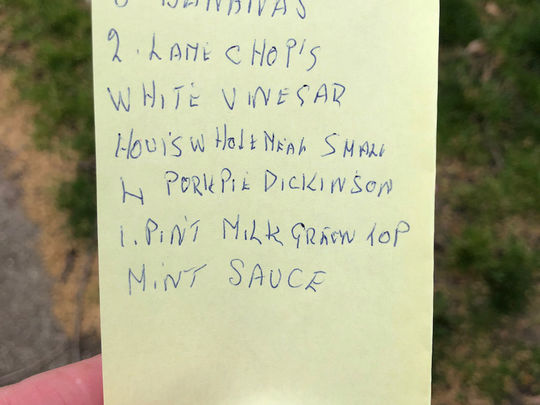 BANANAS
2. LAME CHOP'S
WHITE VINEGAR
HOUI'S WHOLEMEAL SMALL
4 PORKPIE DICKINSON
1. PINT MILK GREEN TOP
MINT SAUCE